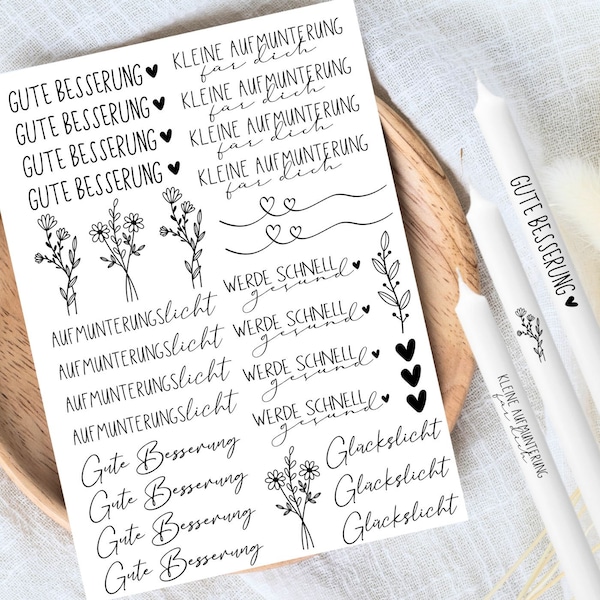 GUTE BESSERUNG
GUTE BESSERUNG
GUTE BESSERUNG
GUTE BESSERUNG
KLEINE AUFMUNTERUNG
für dich
KLEINE AUFMUNTERUNG
für dich
KLEINE AUFMUNTERUNG
für dich
KLEINE AUFMUNTERUNG
für dich
AUFMUNTERUNGSlicht
AUFMUNTERUNGSlicht
AUFMUNTERUNGSlicht
AUFMUNTERUNGSlicht
WERDE SCHNELL
gesund
WERDE SCHNELL
gesund
WERDE SCHNELL
gesund
WERDE SCHNELL
gesund
Gute Besserung
Gute Besserung
Gute Besserung
Gute Besserung
Glückslicht
Glückslicht
Glückslicht
GUTE BESSERUNG
KLEINE AUFMUNTERUNG
für dich